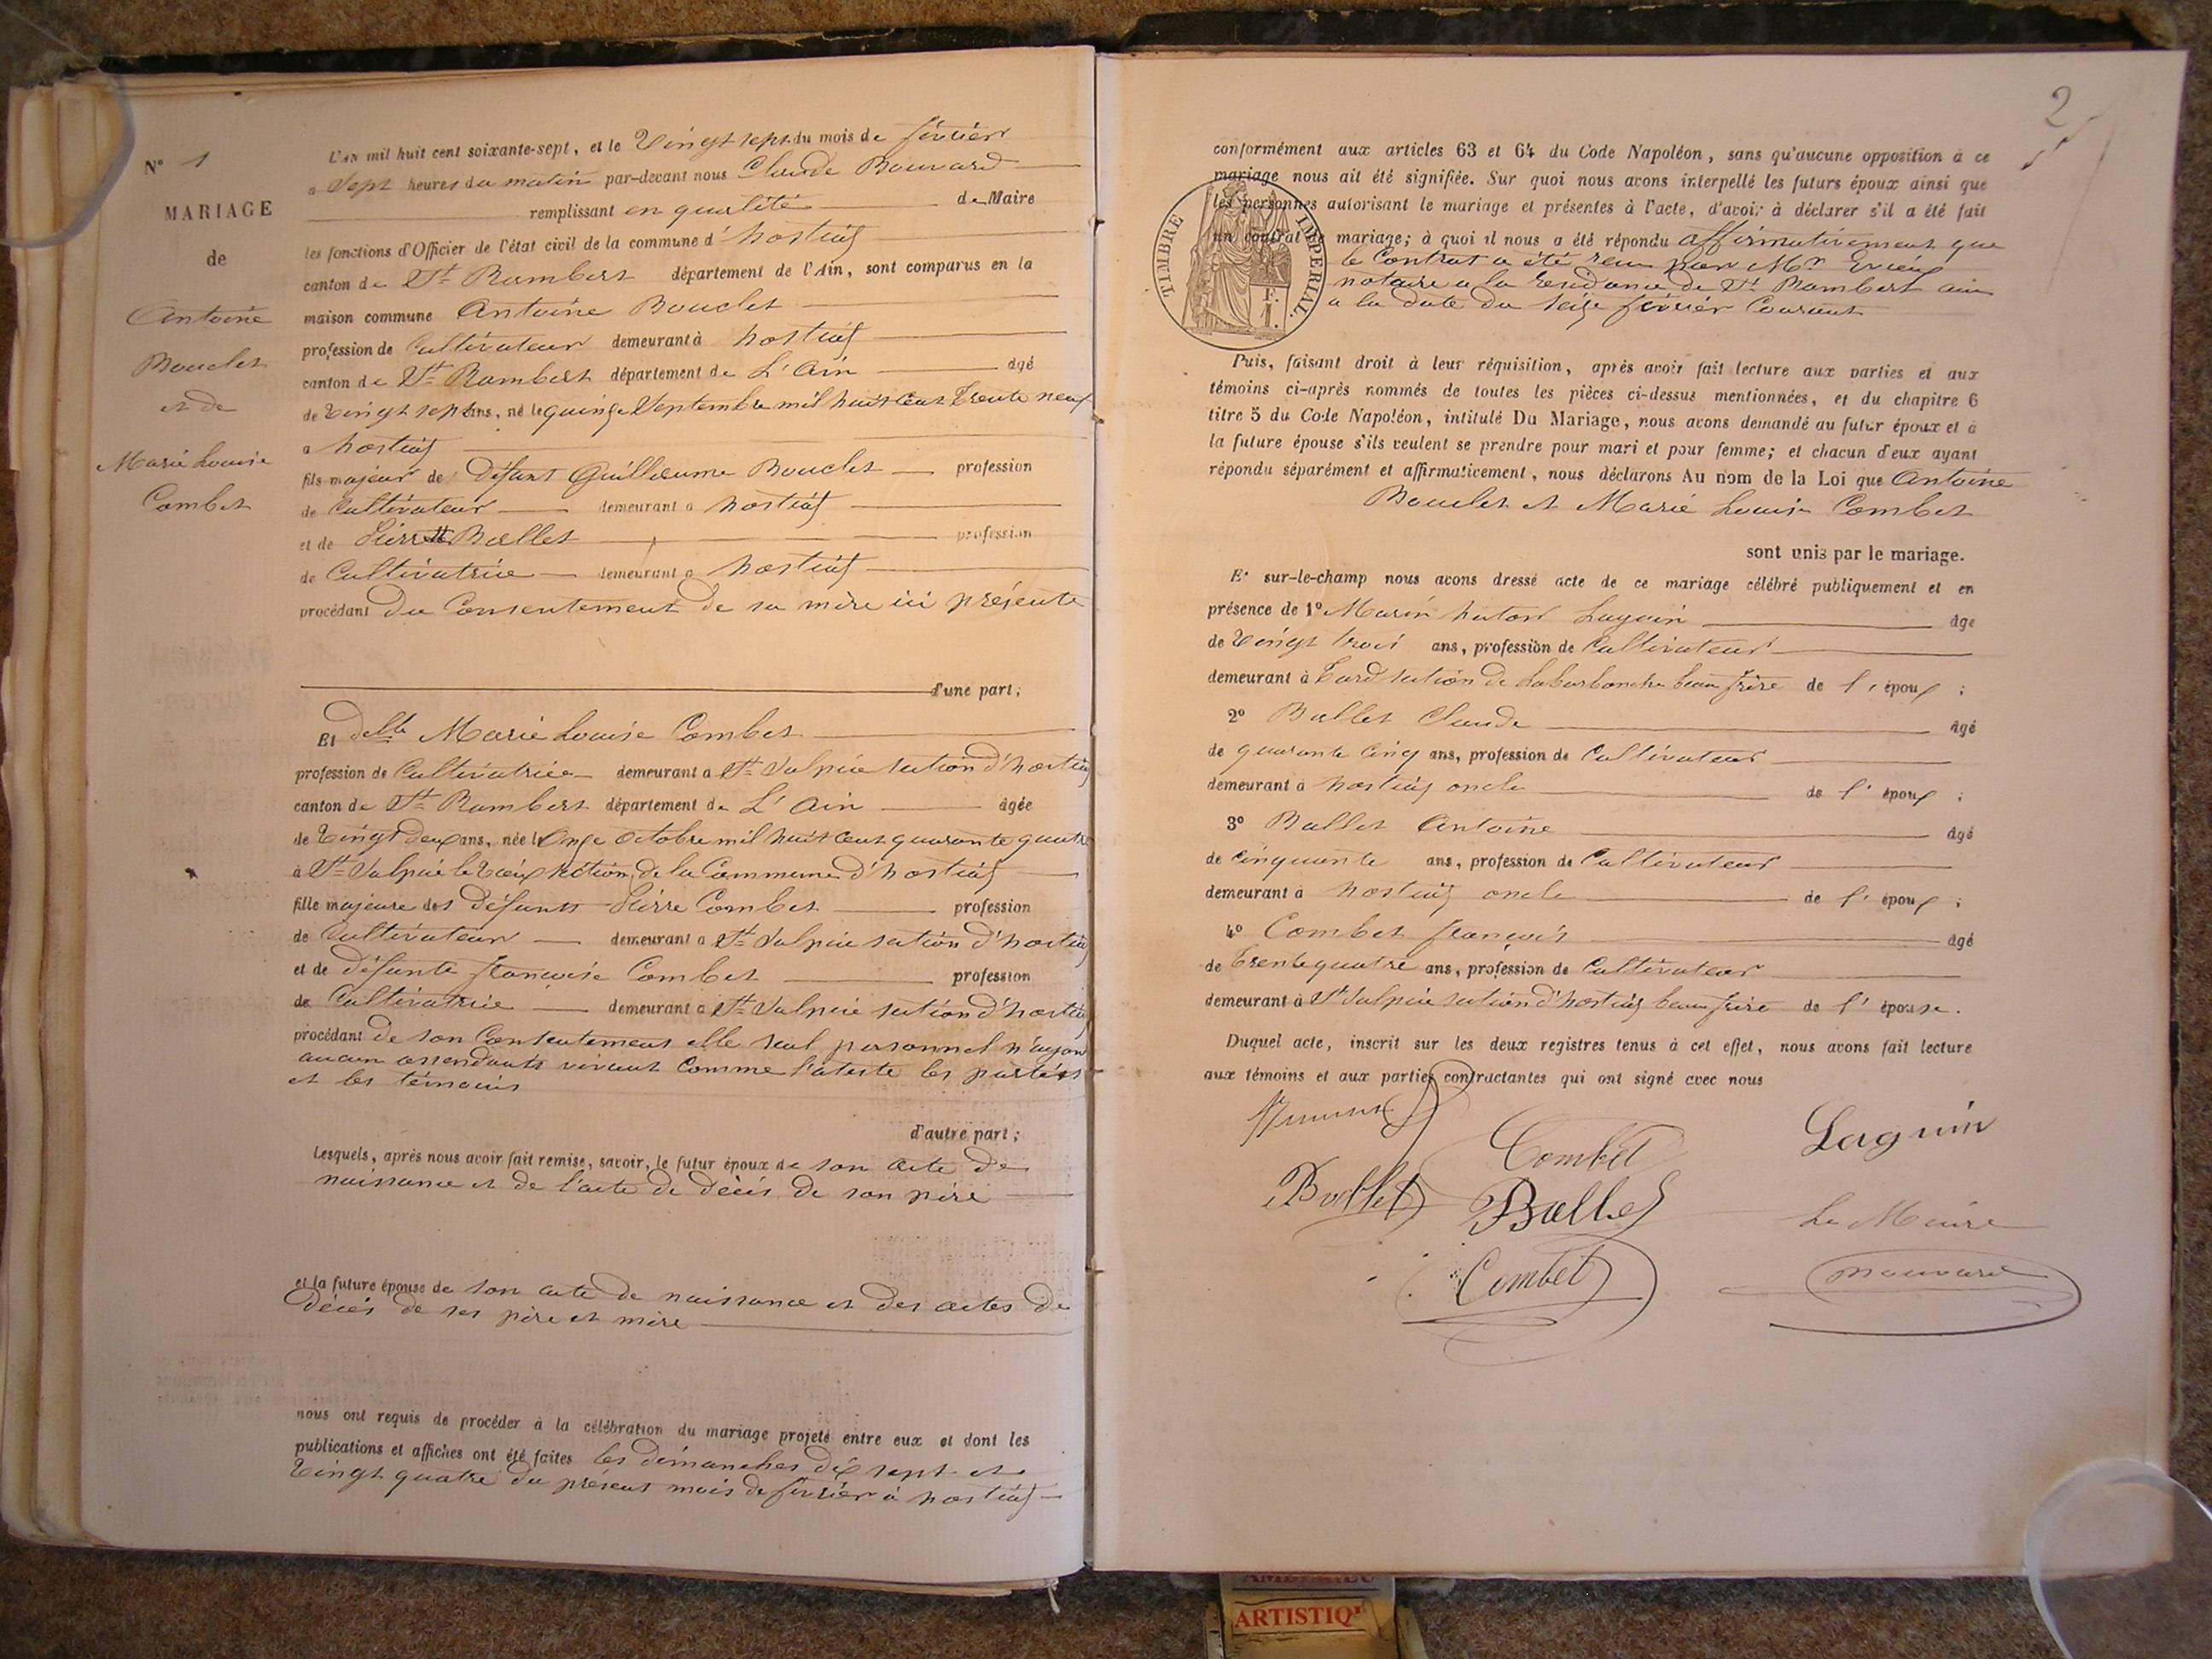 N° 1
MARIAGE
de
Antoine
Bouclet
et de
Marie Louise
Combet
L'AN mil huit cent soixante-sept, et le Vingt sept du mois de février
a sept heures du matin par-devant nous Claude Bouvard
remplissant en qualité de Maire
les fonctions d'Officier de l'état civil de la commune d' hostias
canton de St Rambert département de l'Ain, sont comparus en la
maison commune Antoine Bouclet
profession de Cultivateur demeurant à hostias
canton de St Rambert département de L'Ain âgé
de Vingt sept ans, né le quinze Septembre mil huit Cent Trente neuf
a hostias
fils majeur de Défunt Guillaume Bouclet profession
de Cultivateur demeurant a hostias
et de Pierrette Ballet profession
de Cultivatrice demeurant a hostias
procédant du Consentement de sa mère ici présente
d'une part;
Et delle Marie Louise Combet
profession de Cultivatrice demeurant a St Sulpice section d'hostias
canton de St Rambert département de L'Ain âgée
de Vingt deux ans, née le Onze Octobre mil huit cent quarante quatre
à St Sulpice le Vieux section de la Commune d'hostias
fille majeure des défunts Pierre Combet profession
de Cultivateur demeurant a St Sulpice section d'hostias
et de défunte françoise Combet profession
de Cultivatrice demeurant a St Sulpice section d'hostias
procédant de son Consentement elle seul personnel n'ayant
aucun assendants vivant Comme l'ateste les parties
et les témoins
d'autre part;
Lesquels, après nous avoir fait remise, savoir, le futur époux de son acte de
naissance et de l'acte de décès de son père
et la future épouse de son acte de naissance et des actes de
Décès de ses père et mère
nous ont requis de procéder à la célébration du mariage projeté entre eux et dont les
publications et affiches ont été faites les dimanches dix sept et
Vingt quatre du présent mois de février à hostias
2
conformément aux articles 63 et 64 du Code Napoléon, sans qu'aucune opposition à ce
mariage nous ait été signifiée. Sur quoi nous avons interpellé les futurs époux ainsi que
les personnes autorisant le mariage et présentes à l'acte, d'avoir à déclarer s'il a été fait
un contrat de mariage; à quoi il nous a été répondu affirmativement que
le Contrat a été reçu par Mr
notaire a la résidence de St Rambert ain
a la date du seize février Courant
TIMBRE IMPERIAL
F.
1.
Puis, faisant droit à leur réquisition, après avoir fait lecture aux parties et aux
témoins ci-après nommés de toutes les pièces ci-dessus mentionnées, et du chapitre 6
titre 5 du Code Napoléon, intitulé Du Mariage, nous avons demandé au futur époux et à
la future épouse s'ils veulent se prendre pour mari et pour femme; et chacun d'eux ayant
répondu séparément et affirmativement, nous déclarons Au nom de la Loi que Antoine
Bouclet et Marie Louise Combet
sont unis par le mariage.
Et sur-le-champ nous avons dressé acte de ce mariage célébré publiquement et en
présence de 1° Marin Laguin âgé
de Vingt trois ans, profession de Cultivateur
demeurant à section de beau frère de l' époux;
2° Ballet Claude âgé
de quarante cinq ans, profession de Cultivateur
demeurant à hostias oncle de l' époux;
3° Ballet Antoine âgé
de cinquante ans, profession de Cultivateur
demeurant à hostias oncle de l' époux;
4° Combet françois âgé
de Trente quatre ans, profession de Cultivateur
demeurant à St Sulpice section d'hostias beau frère de l' épouse.
Duquel acte, inscrit sur les deux registres tenus à cet effet, nous avons fait lecture
aux témoins et aux parties contractantes qui ont signé avec nous
Combet
Laguin
Ballet
Ballet
Le Maire
Combet
Bouvard
ARTISTIQ